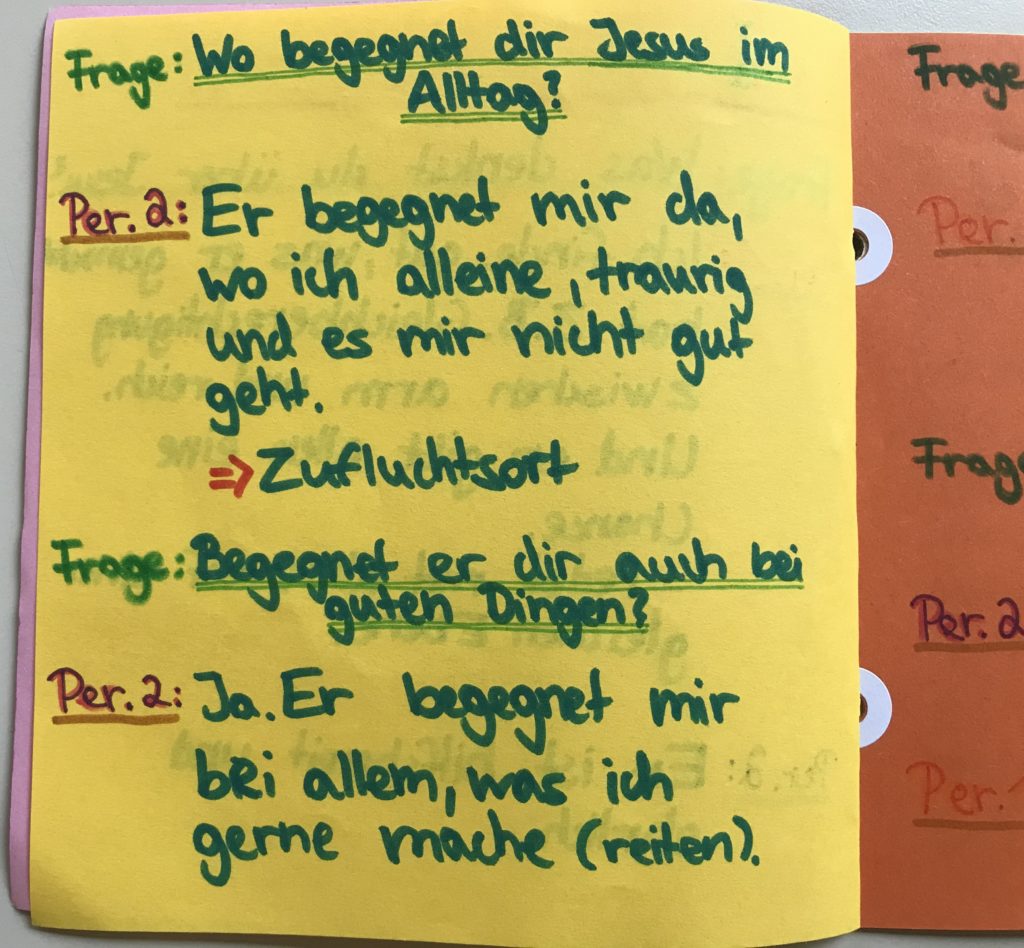 Frage: Wo begegnet dir Jesus im
Alltag?
Per. 2: Er begegnet mir da,
wo ich alleine, traurig
und es mir nicht gut
geht.
⇒ Zufluchtsort
Frage: Begegnet er dir auch bei
guten Dingen?
Per. 2: Ja. Er begegnet mir
bei allem, was ich
gerne mache (reiten).
Frage
Per.
Frage
Per. 2
Per.